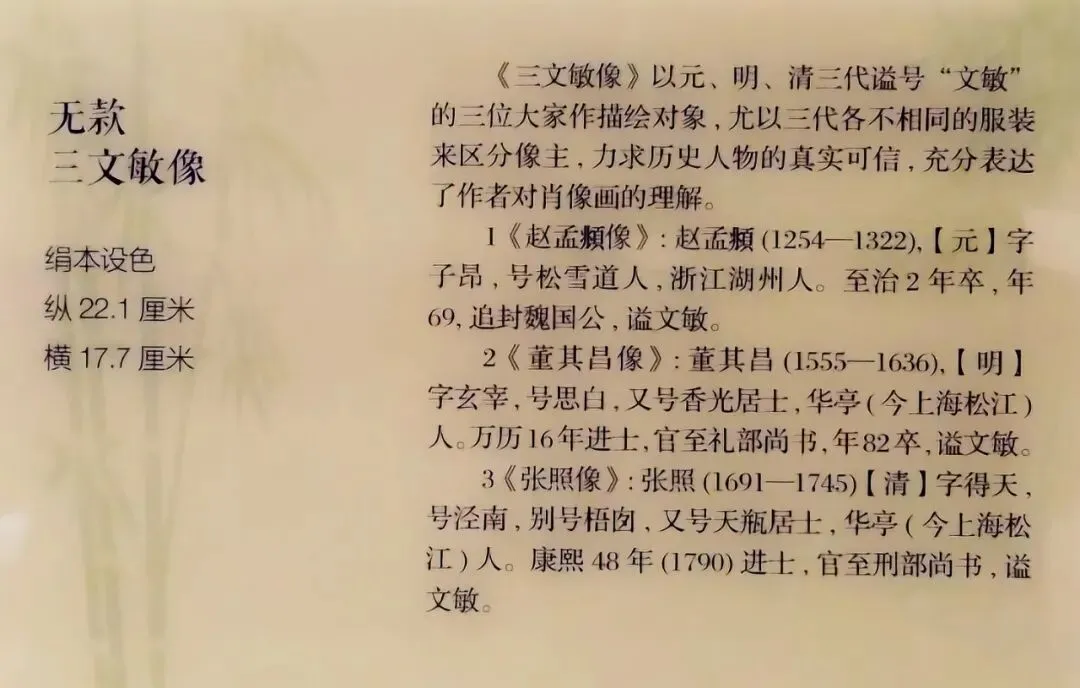 无款
三文敏像
绢本设色
纵 22.1 厘米
横 17.7 厘米
《三文敏像》以元、明、清三代谥号“文敏”
的三位大家作描绘对象，尤以三代各不相同的服装
来区分像主，力求历史人物的真实可信，充分表达
了作者对肖像画的理解。
1《赵孟頫像》：赵孟頫 (1254—1322),【元】字
子昂，号松雪道人，浙江湖州人。至治 2 年卒，年
69, 追封魏国公，谥文敏。
2《董其昌像》：董其昌 (1555—1636),【明】
字玄宰，号思白，又号香光居士，华亭(今上海松江)
人。万历16年进士，官至礼部尚书，年82卒，谥文敏。
3《张照像》：张照 (1691—1745)【清】字得天，
号泾南，别号梧囱，又号天瓶居士，华亭(今上海松
江)人。康熙 48 年 (1790) 进士，官至刑部尚书，谥
文敏。